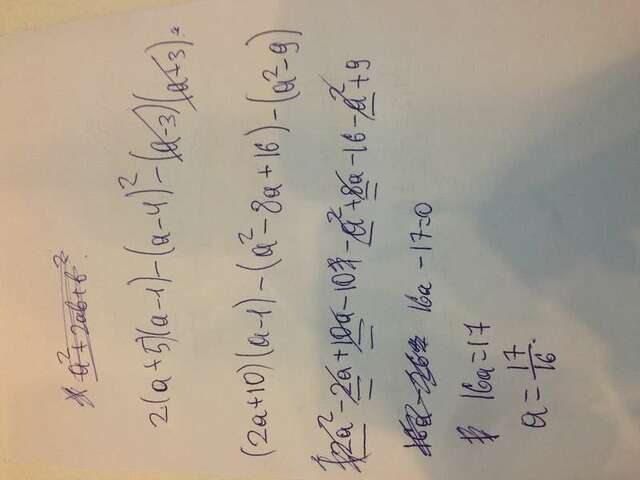 a²+2ab+b²
2(a+5)(a-1)-(a-4)²-(a-3)(a+3)=
(2a+10)(a-1)-(a²-8a+16)-(a²-9)
2a²-2a+10a-10-a²+8a-16-a²+9
16a-17=0
16a=17
a=17/16